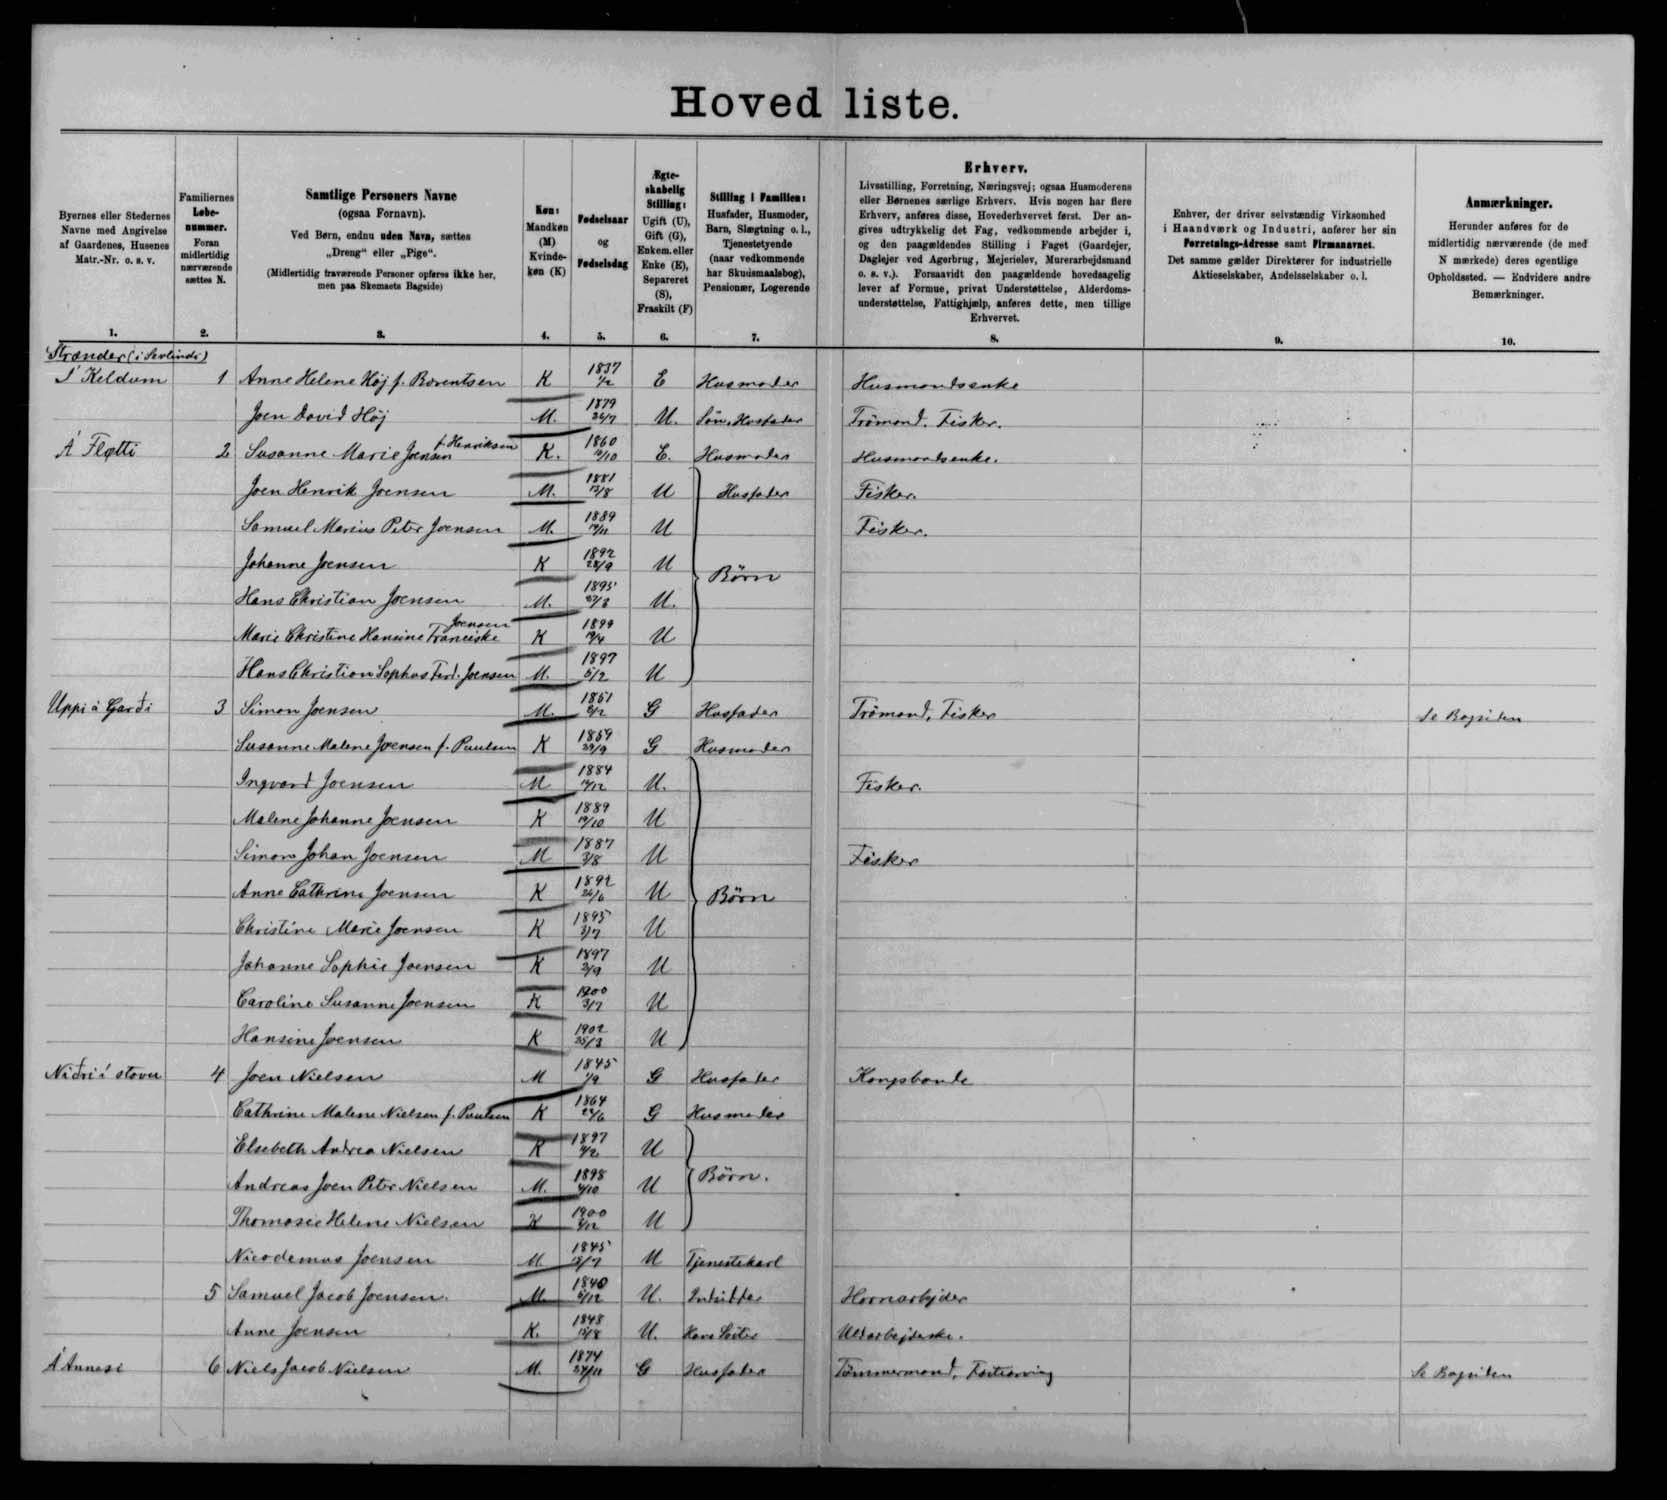 Hoved liste.
Byernes eller Stedernes Navne med Angivelse af Gaardenes, Husenes Matr.-Nr. o. s. v.
Familiernes Løbenummer. Foran midlertidig nærværende sættes N.
Samtlige Personers Navne (ogsaa Fornavn). Ved Børn, endnu uden Navn, sættes „Dreng“ eller „Pige“. (Midlertidig fraværende Personer opføres ikke her, men paa Skemaets Bagside)
Køn: Mandkøn (M) Kvindekøn (K)
Fødselsaar og Fødselsdag
Ægteskabelig Stilling: Ugift (U), Gift (G), Enkem. eller Enke (E), Separeret (S), Fraskilt (F)
Stilling i Familien: Husfader, Husmoder, Barn, Slægtning o. l., Tjenestetyende (naar vedkommende har Skudsmaalsbog), Pensionær, Logerende
Erhverv. Livsstilling, Forretning, Næringsvej; ogsaa Husmoderens eller Børnenes særlige Erhverv. Hvis nogen har flere Erhverv, anføres disse, Hovederhvervet først. Der angives udtrykkelig det Fag, vedkommende arbejder i, og den paagældendes Stilling i Faget (Gaardejer, Daglejer ved Agerbrug, Mejerielev, Murerarbejdsmand o. s. v.). Forsaavidt den paagældende hovedsagelig lever af Formue, privat Understøttelse, Alderdomsunderstøttelse, Fattighjælp, anføres dette, men tillige Erhvervet.
Enhver, der driver selvstændig Virksomhed i Haandværk og Industri, anfører her sin Forretnings-Adresse samt Firmanavnet. Det samme gælder Direktører for industrielle Aktieselskaber, Andelsselskaber o. l.
Anmærkninger. Herunder anføres for de midlertidig nærværende (de med N mærkede) deres egentlige Opholdssted. — Endvidere andre Bemærkninger.
1. 2. 3. 4. 5. 6. 7. 8. 9. 10.
Strænder
Í Keldum 1 Anne Helene Høj f. Berentsen K 1837 1/2 E Husmoder Husmandsenke
Joen David Høj M. 1879 26/7 U. Søn, Husfader Trömand, Fisker.
Á Fløtti 2 Susanne Marie Joensen f. Henriksen K. 1860 E. Husmoder Husmandsenke.
Joen Henrik Joensen M. 1881 13/8 U Husfader Fisker.
Samuel Marius Peter Joensen M. 1889 U Fisker.
Johanne Joensen K 1892 28/9 U Børn
Hans Christian Joensen M. 1895 U.
Marie Christine Hansine Franciske Joensen K 1899 U
Hans Christian Sophus Ferd. Joensen M. 1897 5/2 U
Uppi á Garði 3 Simon Joensen M. 1851 G Husfader Trömand, Fisker Se Bagsiden
Susanne Malene Joensen f. Paulsen K 1859 29/9 G Husmoder
Ingvard Joensen M 1884 U. Fisker.
Malene Johanne Joensen K 1889 U
Simon Johan Joensen M 1887 3/8 U Fisker
Anne Cathrine Joensen K 1892 26/6 U Børn
Christine Marie Joensen K 1895 3/7 U
Johanne Sophie Joensen K 1897 2/9 U
Caroline Susanne Joensen K 1900 3/7 U
Hansine Joensen K 1902 25/3 U
Niðri í stovu 4 Joen Nielsen M 1845 1/9 G Husfader Kongsbonde
Cathrine Malene Nielsen f. Paulsen K 1864 24/6 G Husmoder
Elsebeth Andrea Nielsen K 1897 U
Andreas Joen Peter Nielsen M. 1898 4/10 U Børn.
Thomasie Helene Nielsen K 1900 U
Nicodemus Joensen M 1845 U Tjenestekarl
5 Samuel Jacob Joensen. M. 1840 U. Indsidder Hornarbejder
Anne Joensen K. 1848 U. Hans Søster Uldarbejderske.
Á Annesi 6 Niels Jacob Nielsen M. 1874 24/11 G Husfader Tømmermand, Se Bagsiden